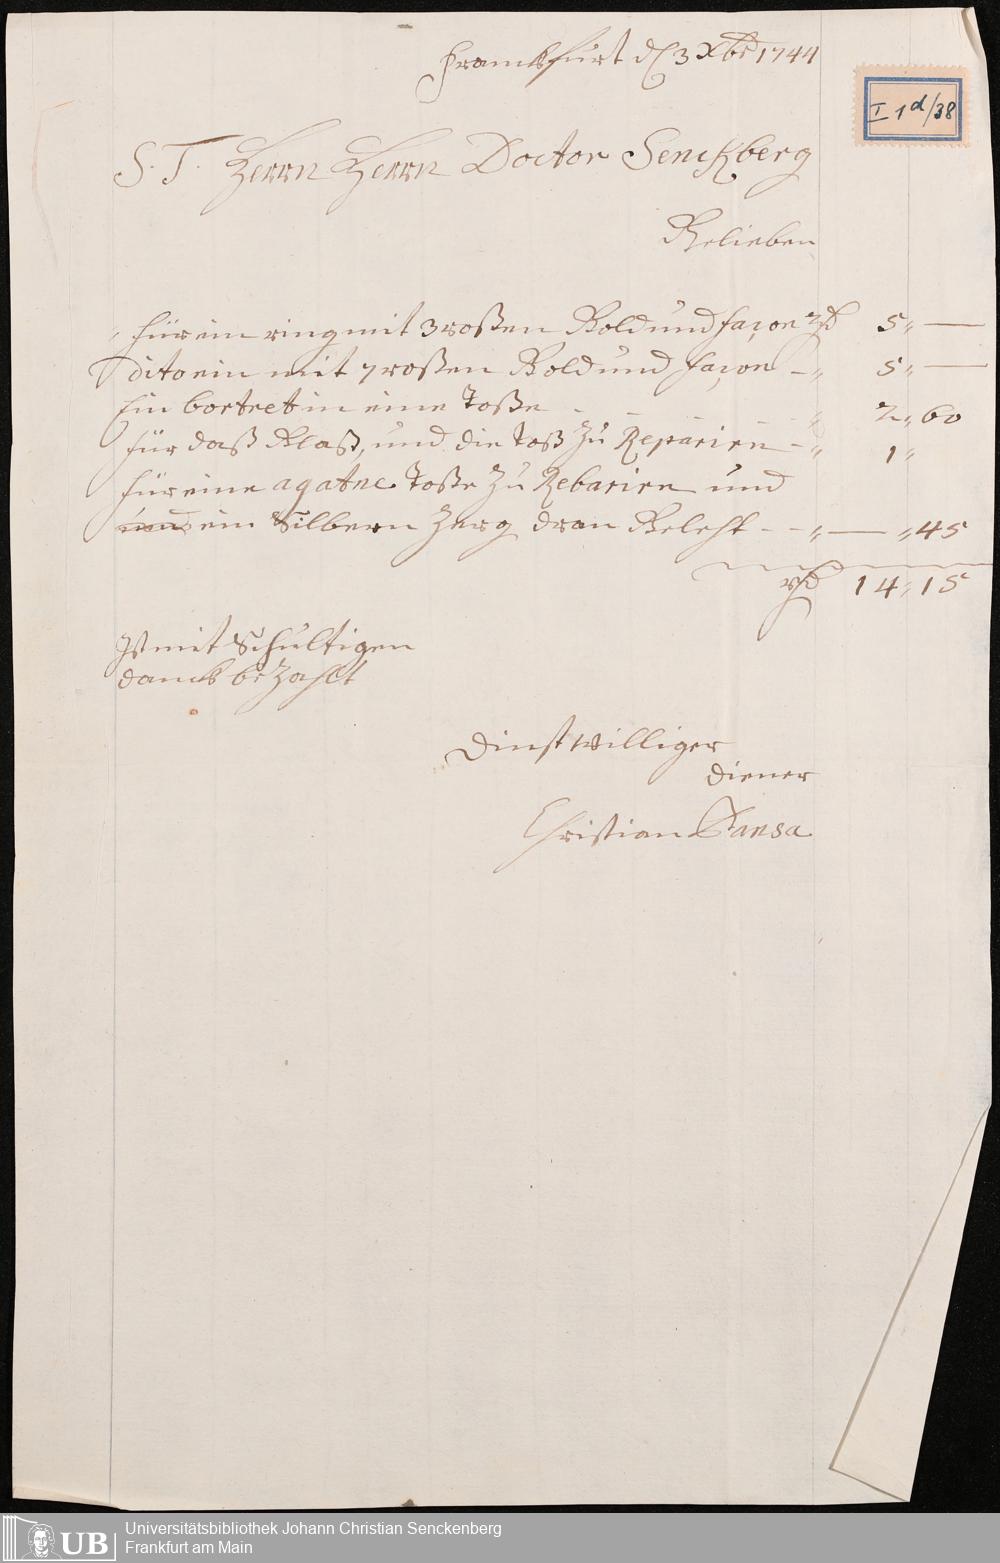 Franckfurt d 3 Xbr 1744
I 1 d/38
S. T. Herrn Herrn Doctor Senckberg
Belieben
für ein ring mit 3 roßen Gold und façon 5 „ —
Dito ein mit 7 roßen Gold und façon - „ 5 „ —
Ein bortret in eine Toße - - - „ 2 „ 60
für daß Glaß, und die Toß zu Reparirn - „ 1 „
für eine agatne Toße zu Rebarirn und
ein Silbern Zerg dran Gelest - - „ — „ 45
14 „ 15
Ist mit Schultigen
danck bezahlt
Dinst Williger
diener
Christian Hansa
Universitätsbibliothek Johann Christian Senckenberg
Frankfurt am Main
UB